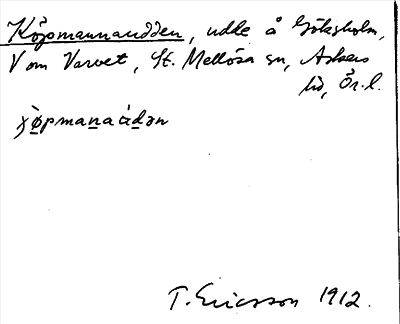 Köpmannaudden, udde å Göksholm,
V om Varvet, St. Mellösa sn, Askers
hd, Ör. l.
T. Ericsson 1912.